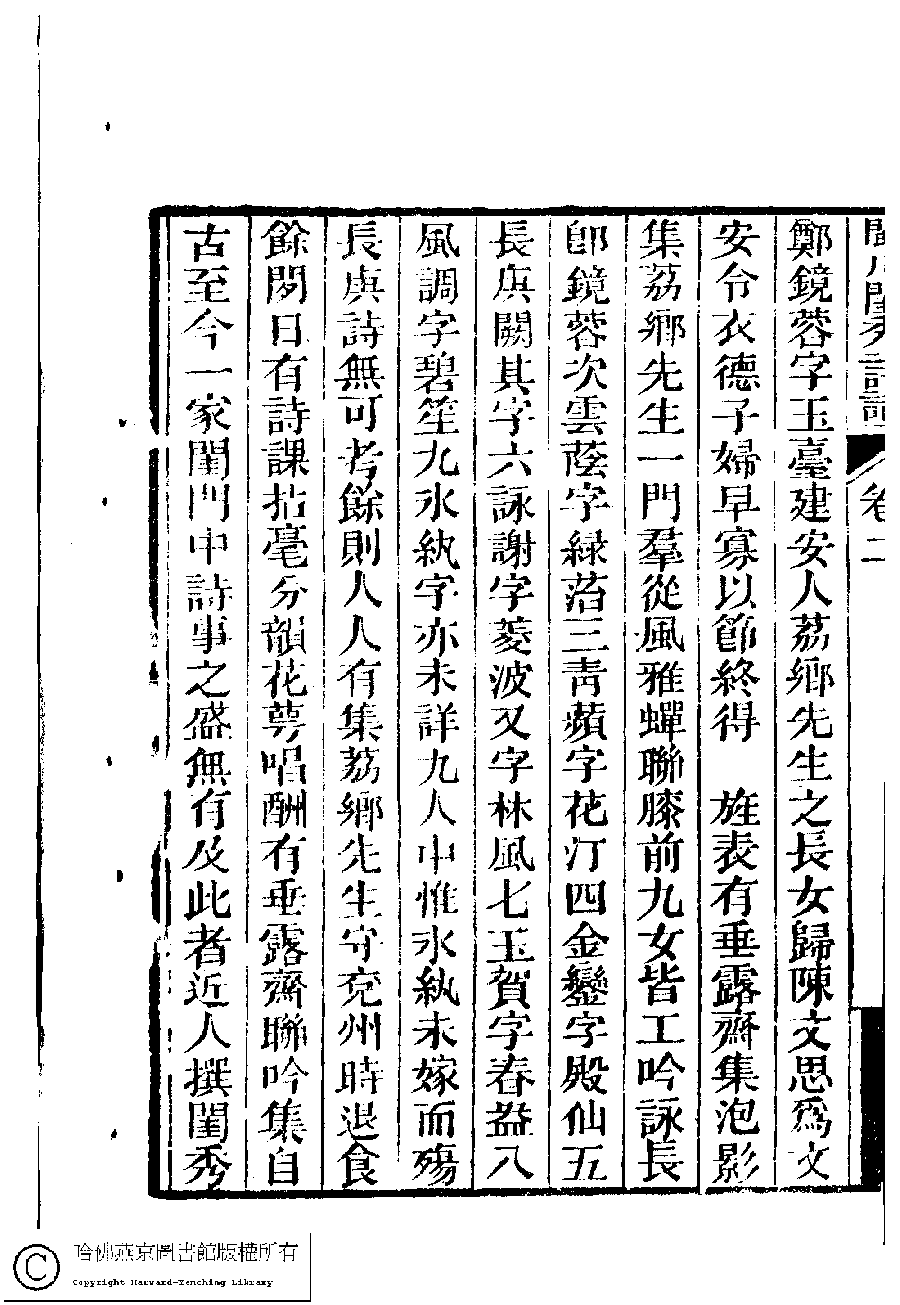 閨秀詩話 卷二
鄭鏡蓉字玉臺建安人荔鄉先生之長女歸陳文思爲文
安令衣德子婦早寡以節終得　旌表有垂露齋集泡影
集荔鄉先生一門羣從風雅蟬聯膝前九女皆工吟詠長
卽鏡蓉次雲蔭字綠菭三青蘋字花汀四金鑾字殿仙五
長庚闕其字六詠謝字菱波又字林風七玉賀字春盎八
風調字碧笙九氷紈字亦未詳九人中惟氷紈未嫁而殤
長庚詩無可考餘則人人有集荔鄉先生守兖州時退食
餘閒日有詩課拈毫分韻花萼唱酬有垂露齋聯吟集自
古至今一家閨門中詩事之盛無有及此者近人撰閨秀
哈佛燕京圖書館版權所有
Copyright Harvard-Yenching Library